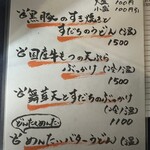 小盛 100円
黒豚のすき焼きと
すだちのうどん(温)
1500
国産牛もつの天ぷら
ぶっかり(冷/温)
1500
舞茸天とすだちのぶっかり
(冷/温)
1100
めんたいバターうどん(温)